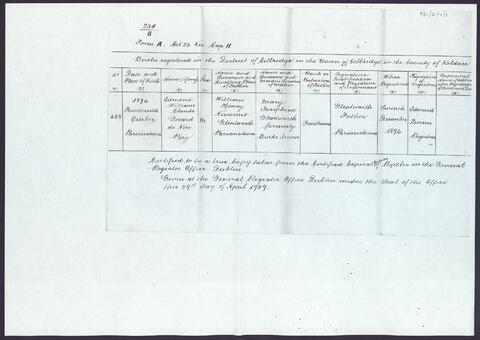 254
6
Form A. Act 26 Vic Cap 11
Births registered in the District of Celbridge in the Union of Celbridge in the County of Kildare
No Date and Place of Birth Name (if any) Sex Name and Surname and Dwelling Place of Father Name and Surname and Maiden Surname of Mother Rank or Profession of Father Signature Qualification and Residence of Informant When Registered Signature of Registrar
(1) (2) (3) (4) (5) (6) (7) (8) (9) (10) (11)
1894 Edmond William
Fourteenth William Henry Mary Josephine Glentworth Seventh Edmund
October Claude Viscount Glentworth Gentleman Father December
438 Gerard M Glentworth formerly Parsonstown 1894 Registrar
Parsonstown de Vere Parsonstown Burke Irwin
Pery
Certified to be a true Copy taken from the Certified Copies of Entries of Births in the General
Register Office, Dublin.
Given at the General Register Office Dublin under the Seal of the Office
this 29th day of April 1929.